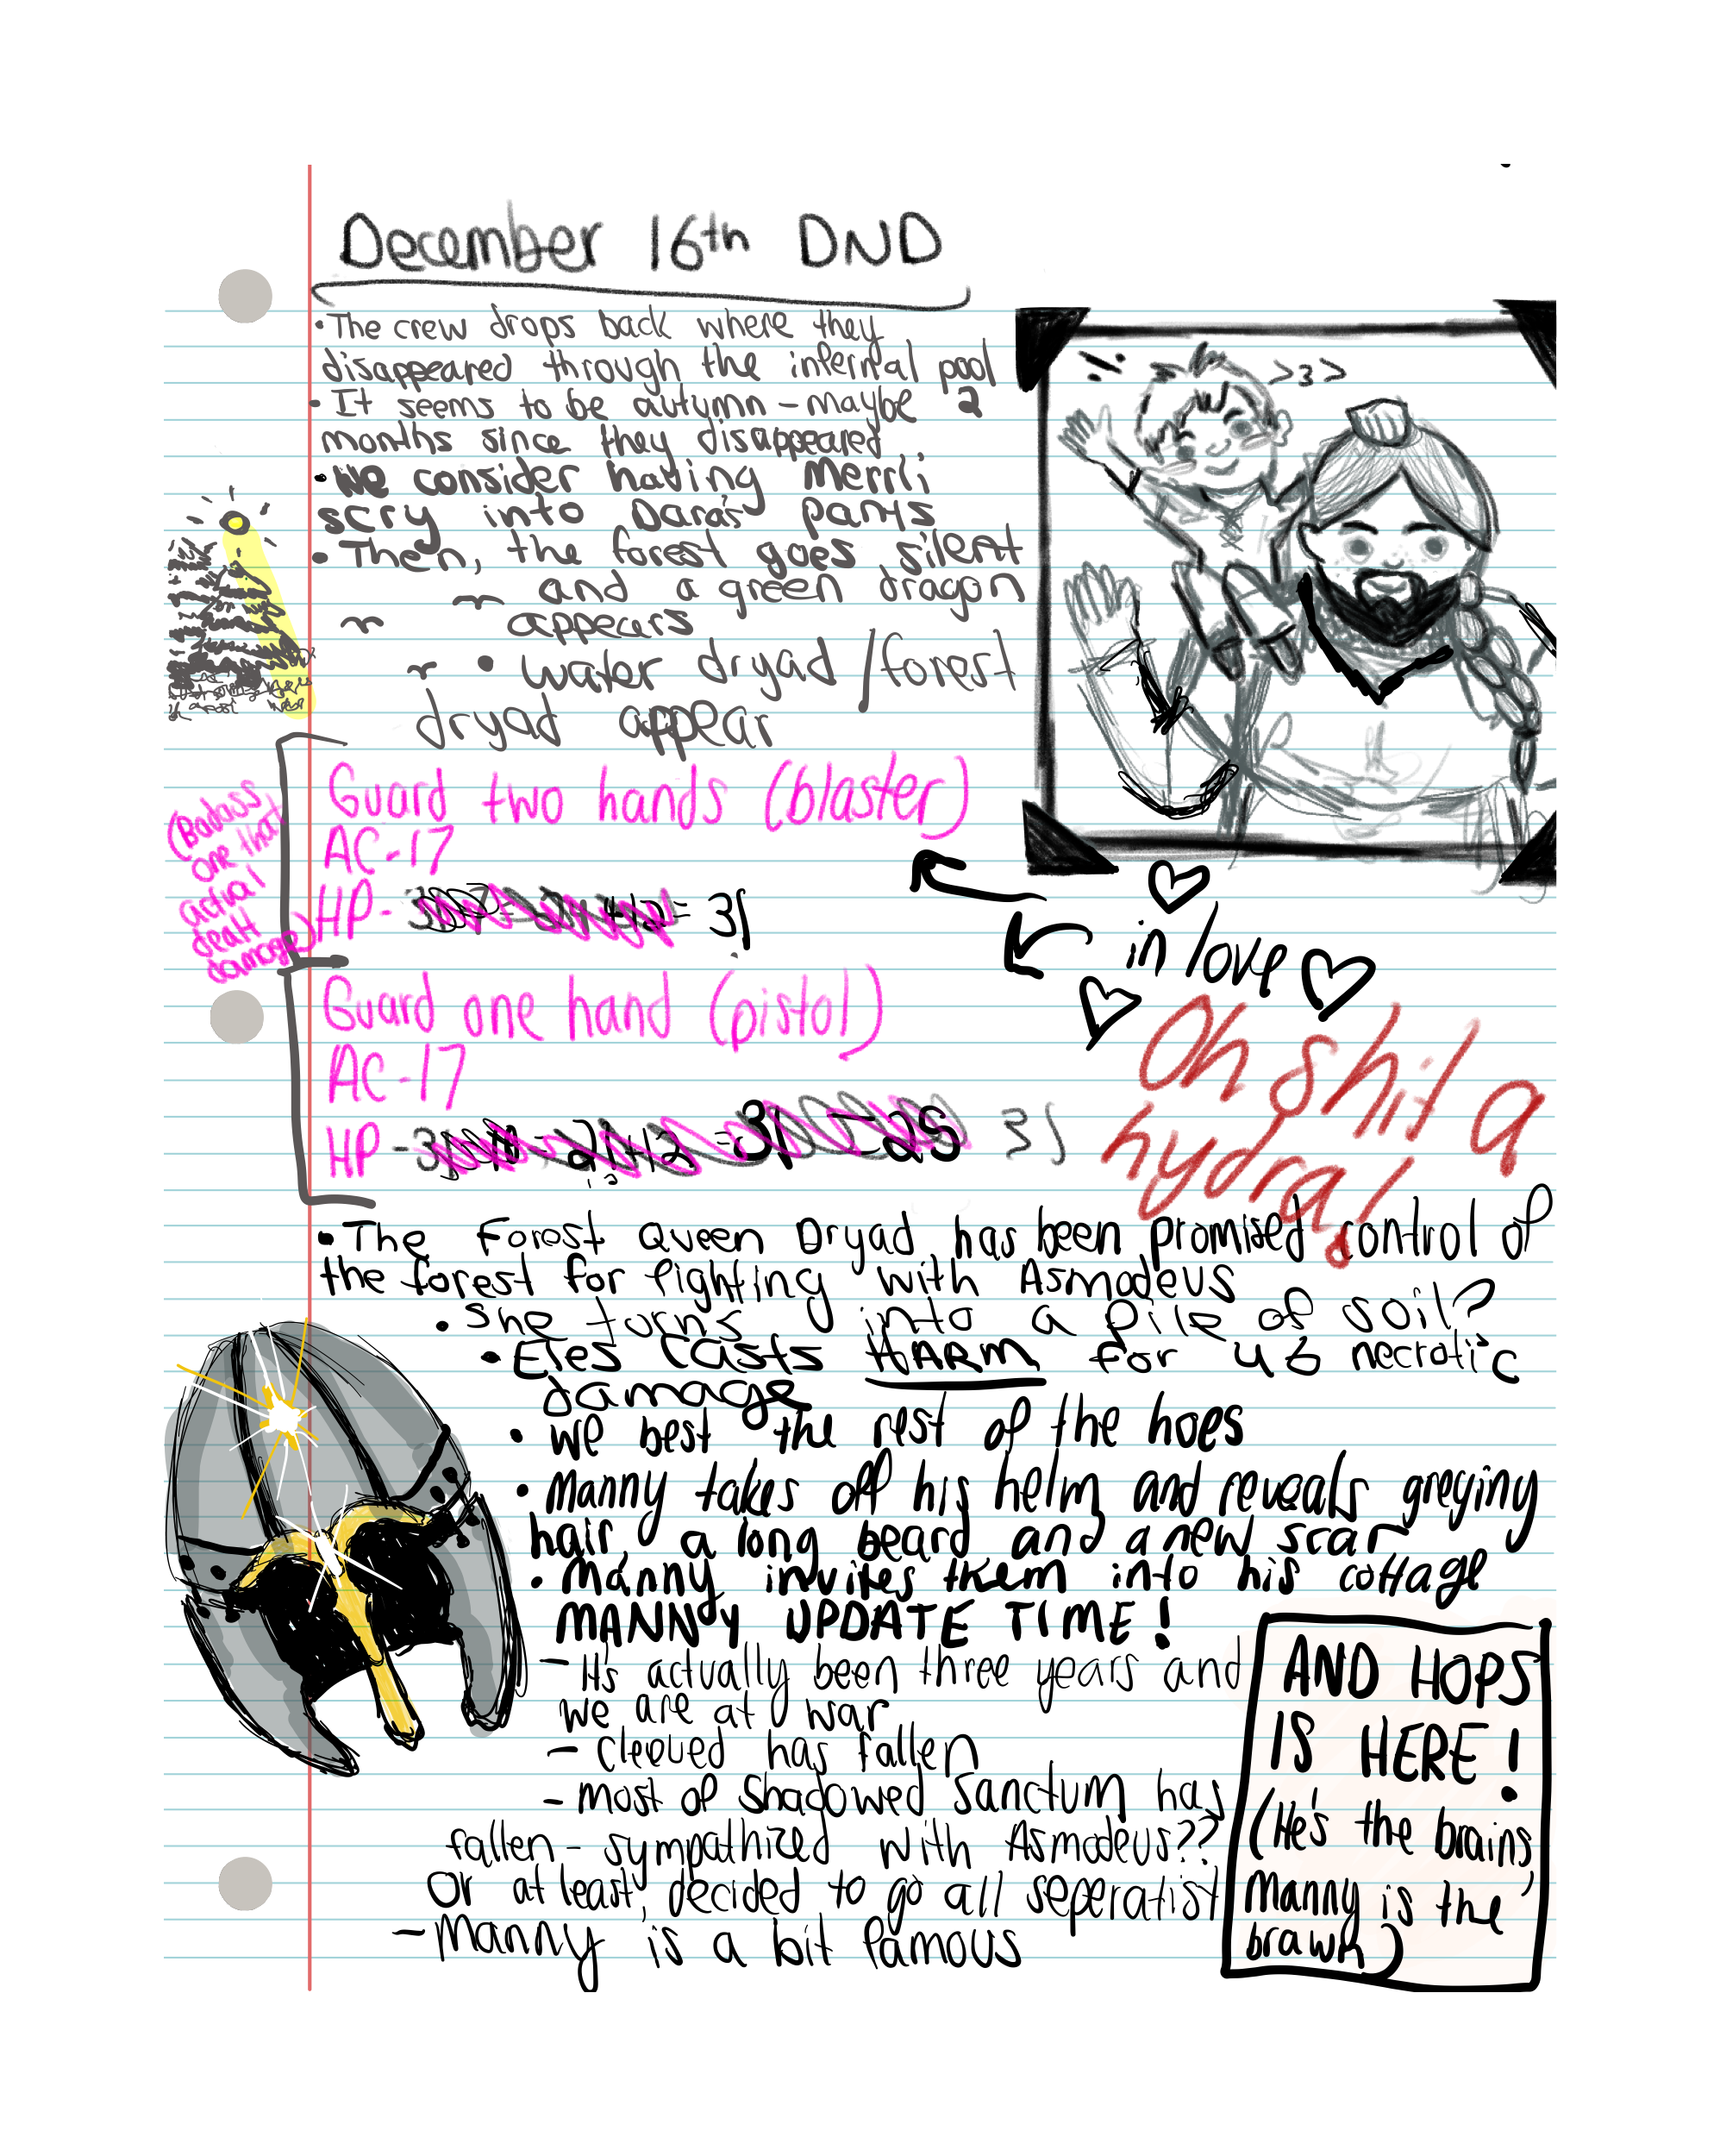 December 16th DND
•The crew drops back where they
disappeared through the infernal pool
• It seems to be autumn - maybe 2
months since they disappeared
• We consider having Merrli
scry into Dara's pants
• Then, the forest goes silent
and a green dragon
appears
• water dryad / forest
dryad appear
>3>
Guard two hands (blaster)
AC-17
HP- = 31
(Badass
one that
actual
dealt
damage)
Guard one hand (pistol)
AC-17
HP - 31
in love
Oh shit a
hydra!
• The Forest Queen Dryad has been promised control of
the forest for fighting with Asmodeus
• She turns into a pile of soil?
• Eles casts HARM for 46 necrotic
damage
• We best the rest of the hoes
• Manny takes off his helm and reveals greying
hair, a long beard and a new scar
• Manny invites them into his cottage
MANNY UPDATE TIME!
- It's actually been three years and
we are at war
- Cleoued has fallen
- most of Shadowed Sanctum has
fallen - sympathized with Asmodeus??
Or at least, decided to go all seperatist
- Manny is a bit famous
AND HOPS
IS HERE!
(He's the brains,
Manny is the
brawn)